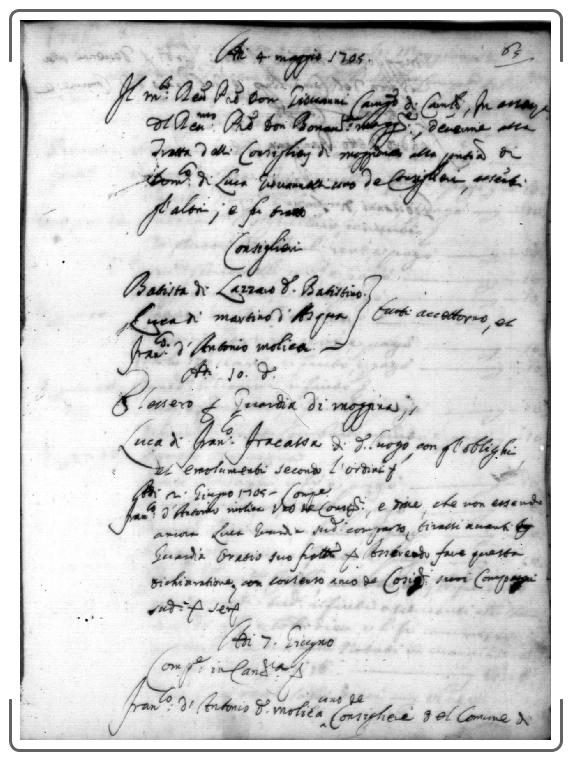 65
Adi 4 maggio 1705.
Il m.to Reu.do Pre Don Giovanni
del Reu.mo Pre Don Bonau.ra devenne alla
Tratta delli Consiglieri di moggiona alla di
Dom.co di Luca uno de Consiglieri, assenti
gl'altri, e fu tratto
Consiglieri
Batista di Lazzaro d. Batistino
Luca di martino d'Acqua
tutti accettorno, et
Fran.co d'Antonio molica
Adi 10. d.
Elessero p Guardia di moggiona
Luca di Fran.co Fracassa di d. luogo, con gl'oblighi
et emolumenti secondo l'ordini p
Adi 2. Giugno 1705 Compe
Fran.co d'Antonio molica uno de Consi., e disse, che non essendo
ancora Luca Guardia sud.o comparso, avanti
Guardia Oratio suo p fare questa
dichiaratione, con consenso anco de Consig. suoi Compagni
sud.i p
Adi 7. Giugno
Comp.e in Canc.a p
Fran.co d'Antonio d. molica uno de Consiglieri del Comune di